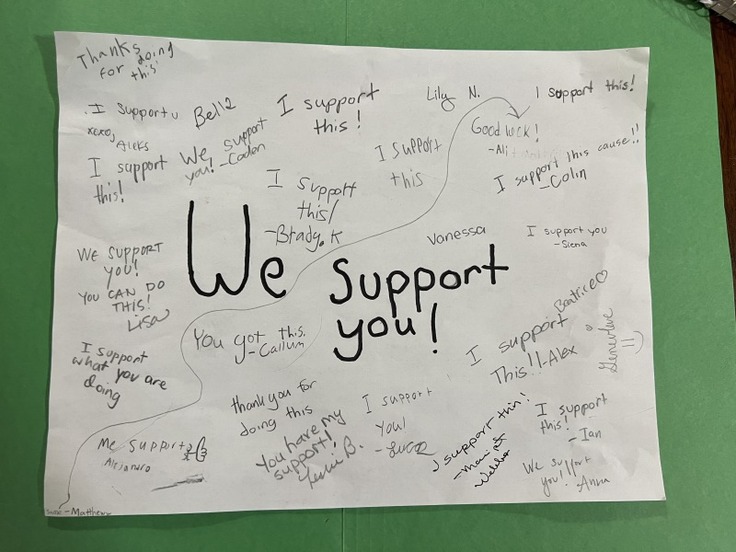 Thanks
for doing
this
I Support u
xoxo,
Aleks
Bella
I support
this!
Lily N.
I support this!
Good luck!
-Ali
We support
you! -Caden
I support
this!
I support
this
I support this cause!!
-Colin
I support
this!
-Brady.K
We support
you!
Vanessa
I support you
-Siena
WE SUPPORT
YOU!
YOU CAN DO
THIS!
Lisa
You got this.
-Callum
Beatrice♡
I support
This!! -Alex
Genevieve
I support
what you are
doing
thank you for
doing this
You have my
support!
B.
I support
you!
-Luca
I support this!
I support
this!
-Ian
Me Support
Alejandro
We support
you! -Anna
-Matthew